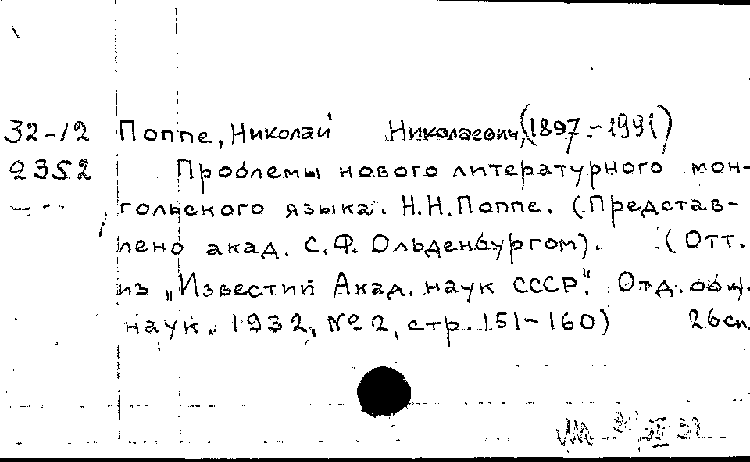 32-12 Поппе, Николай Николаевич, (1897-1991)
2352 Проблемы нового литературного мон-
гольского языка. Н.Н.Поппе. (Представ-
лено акад. С.Ф. Ольденбургом). (Отт.
из „Известий Акад. наук СССР." Отд. общ.
наук. 1932, №2, стр. 151-160) 26сп.